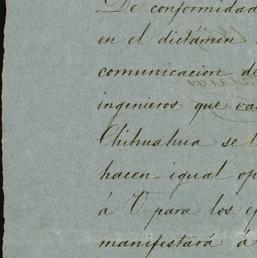 De conformidad
en el dictámen
comunicacion de
ingenieros que va
Chihuahua se
hacen igual op
á V. para los ef
manifestará á